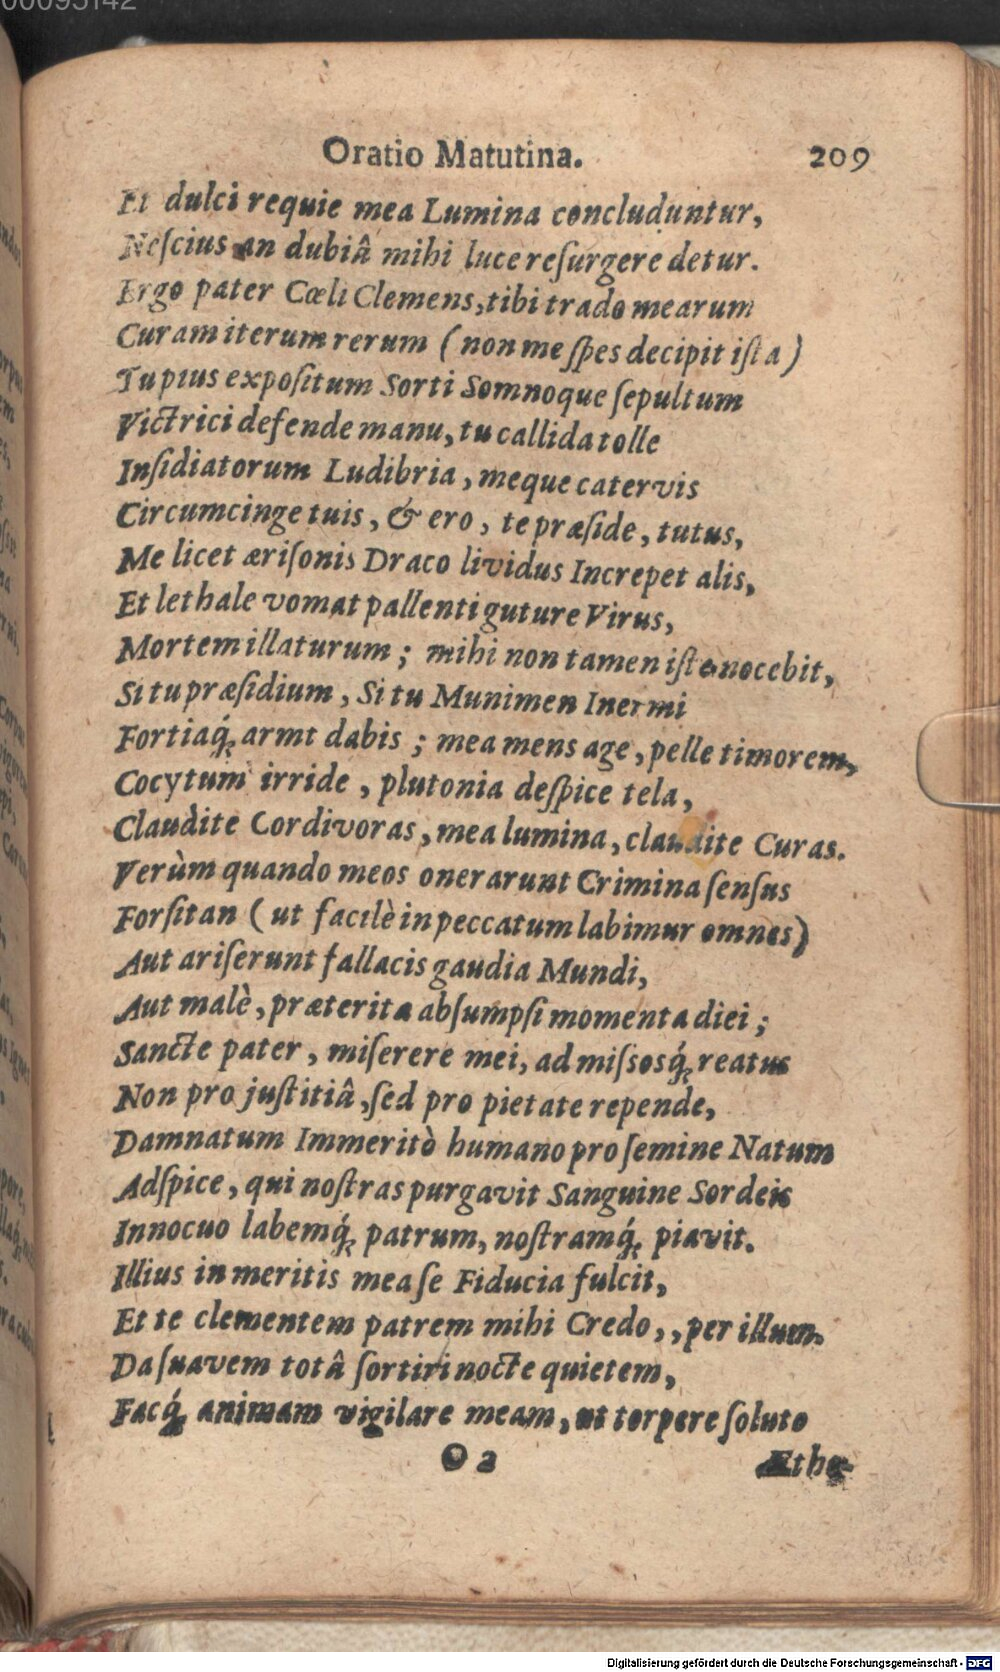 00095142
Oratio Matutina. 209
Et dulci requie mea Lumina concluduntur,
Neſcius an dubiâ mihi luce reſurgere detur.
Ergo pater Cœli Clemens, tibi trado mearum
Curam iterum rerum (non me ſpes decipit iſta)
Tu pius expoſitum Sorti Somnoque ſepultum
Victrici defende manu, tu callida tolle
Inſidiatorum Ludibria, meque catervis
Circumcinge tuis, & ero, te præſide, tutus,
Me licet æriſonis Draco lividus Increpet alis,
Et lethale vomat pallenti guture Virus,
Mortem illaturum; mihi non tamen iſta nocebit,
Si tu præſidium, Si tu Munimen Inermi
Fortiaq́; armt dabis; mea mens age, pelle timorem,
Cocytum irride, plutonia deſpice tela,
Claudite Cordivoras, mea lumina, claudite Curas.
Verùm quando meos onerarunt Crimina ſenſus
Forſitan (ut facilè in peccatum labimur omnes)
Aut ariſerunt fallacis gaudia Mundi,
Aut malè, præterita abſumpſi momenta diei;
Sancte pater, miſerere mei, admiſsosq́; reatus
Non pro juſtitiâ, ſed pro pietate repende,
Damnatum Immeritò humano pro ſemine Natum
Adſpice, qui noſtras purgavit Sanguine Sordeis
Innocuo labemq́; patrum, noſtramq́; piavit.
Illius in meritis mea ſe Fiducia fulcit,
Et te clementem patrem mihi Credo,, per illum.
Da ſuavem totâ ſortiri nocte quietem,
Facq́; animam vigilare meam, ut torpere ſoluto
O 2
Digitalisierung gefördert durch die Deutsche Forschungsgemeinschaft - DFG